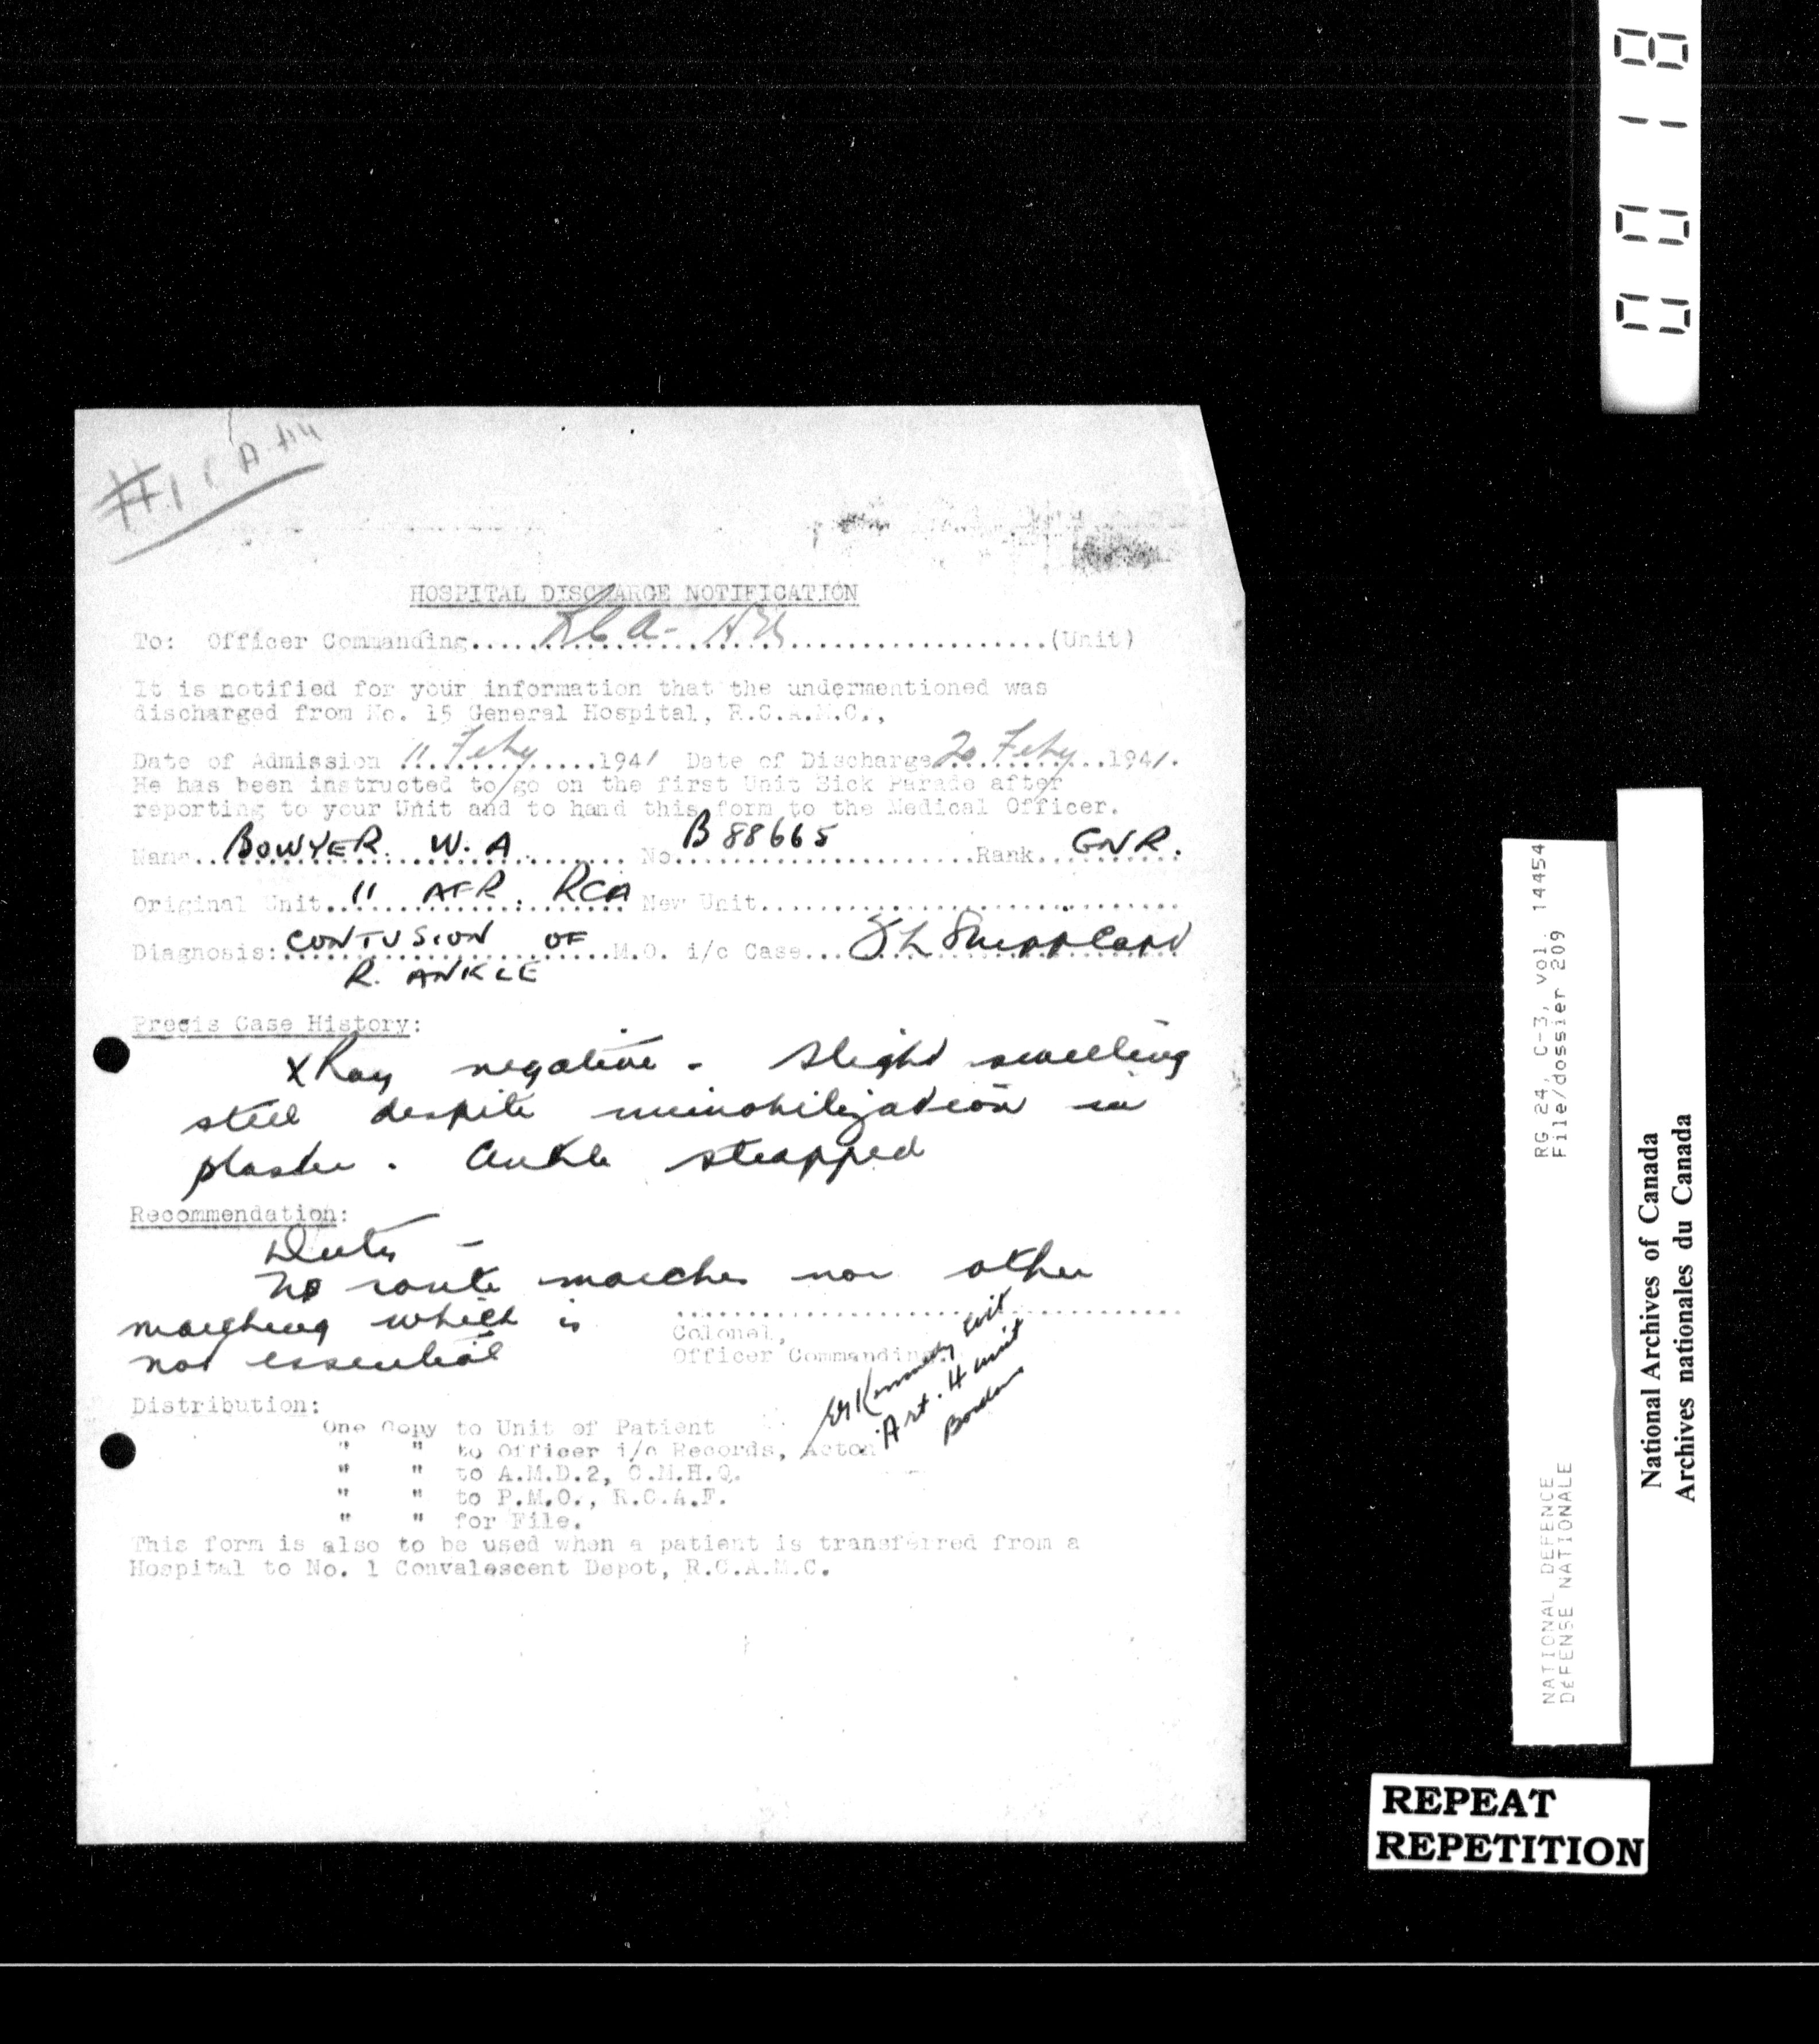 0018
HOSPITAL DISCHARGE NOTIFICATION
To: Officer Commanding.....RCA-.....(Unit)
It is notified for your information that the undermentioned was
discharged from No. 15 General Hospital, R.C.A.M.C.,
Date of Admission 11 Feby 1941 Date of Discharge 20 Feby 1941.
He has been instructed to go on the first Unit Sick Parade after
reporting to your Unit and to hand this form to the Medical Officer.
Name..BOWYER. W. A No. B 88665 Rank GNR.
Original Unit 11 AFR. RCA New Unit
Diagnosis: CONTUSION OF M.O. i/c Case
R. ANKLE
Precis Case History:
X Ray negative - Slight swelling
still despite immobilization in
plaster. Ankle strapped
Recommendation:
Duty -
No route marches nor other
marching which is
not essential
Colonel,
Officer Commanding.
Kennedy
Art. H unit
Borden
Distribution:
One Copy to Unit of Patient
" " to Officer i/c Records, Acton
" " to A.M.D.2, C.M.H.Q.
" " to P.M.O., R.C.A.F.
" " for File.
This form is also to be used when a patient is transferred from a
Hospital to No. 1 Convalescent Depot, R.C.A.M.C.
NATIONAL DEFENCE RG 24, C-3, vol. 14454
DÉFENSE NATIONALE File/dossier 209
National Archives of Canada
Archives nationales du Canada
REPEAT
REPETITION